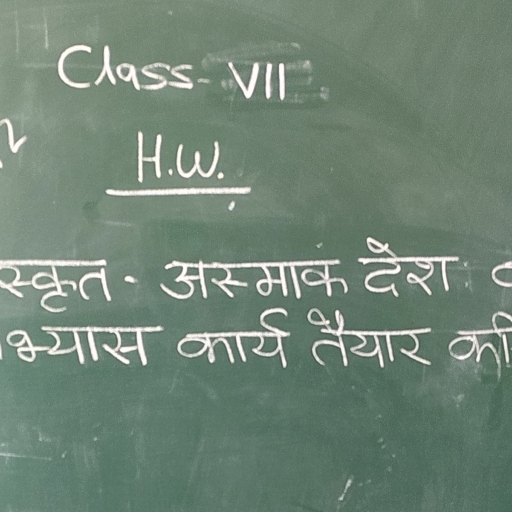 Class- VII
H.W.
स्कृत - अस्माक देश:
भ्यास कार्य तैयार की